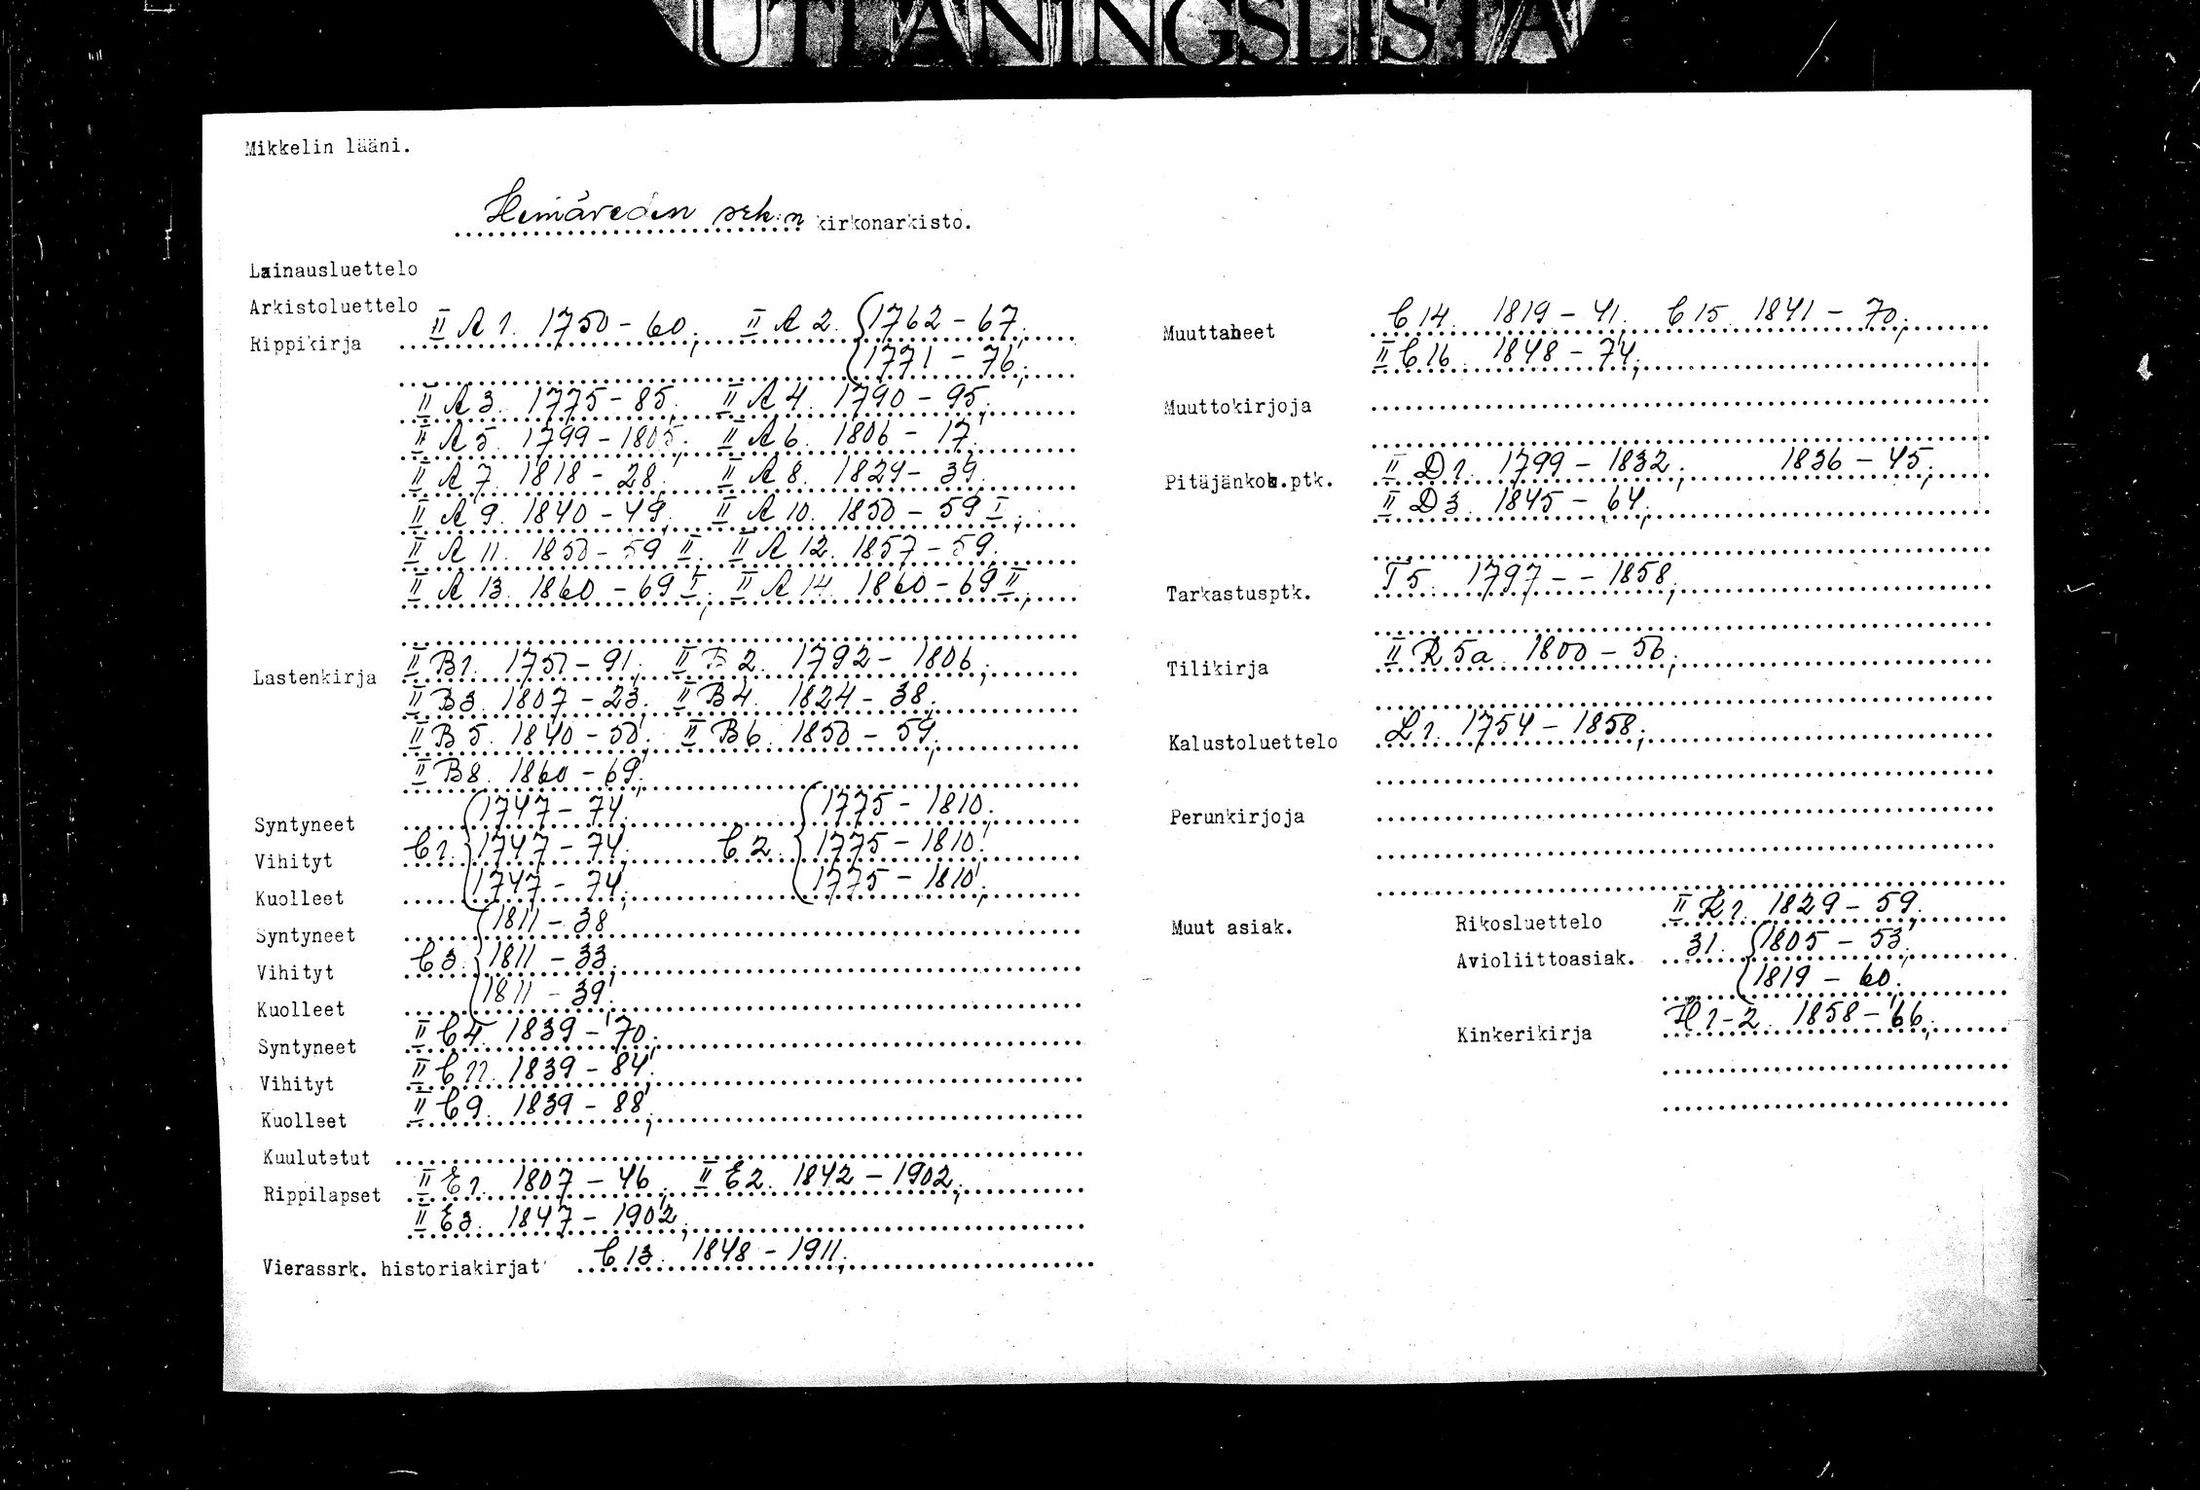 UTLÅNINGSLISTA
Mikkelin lääni.
Heinäveden srk:n kirkonarkisto.
Lainausluettelo
Arkistoluettelo
Rippikirja II A 1. 1750-60; II A 2. 1762-67;
1771-76;
II A 3. 1775-85; II A 4. 1790-95;
II A 5. 1799-1805; II A 6. 1806-17;
II A 7. 1818-28; II A 8. 1829-39;
II A 9. 1840-49; II A 10. 1850-59 I;
II A 11. 1850-59 II; II A 12. 1857-59;
II A 13. 1860-69 I; II A 14. 1860-69 II;
Lastenkirja II B 1. 1751-91; II B 2. 1792-1806;
II B 3. 1807-23; II B 4. 1824-38;
II B 5. 1840-50; II B 6. 1850-59;
II B 8. 1860-69;
Syntyneet 1747-74; 1775-1810;
Vihityt C 1. 1747-74; C 2. 1775-1810;
Kuolleet 1747-74; 1775-1810;
Syntyneet 1811-38
Vihityt C 3. 1811-33;
Kuolleet 1811-39;
Syntyneet II C 4. 1839-70;
Vihityt II C 11. 1839-84;
Kuolleet II C 9. 1839-88;
Kuulutetut
Rippilapset II E 1. 1807-46; II E 2. 1842-1902;
II E 3. 1847-1902;
Vierassrk. historiakirjat C 13. 1848-1911;
Muuttaneet C 14. 1819-41; C 15. 1841-70;
II C 16. 1848-74;
Muuttokirjoja
Pitäjänkok.ptk. II D 1. 1799-1832; 1836-45;
II D 3. 1845-64;
Tarkastusptk. T 5. 1797--1858;
Tilikirja II R 5a 1800-56;
Kalustoluettelo L 1. 1754-1858;
Perunkirjoja
Muut asiak. Rikosluettelo II K 1. 1829-59;
Avioliittoasiak. 31. 1805-53;
1819-60;
Kinkerikirja H 1-2. 1858-66;